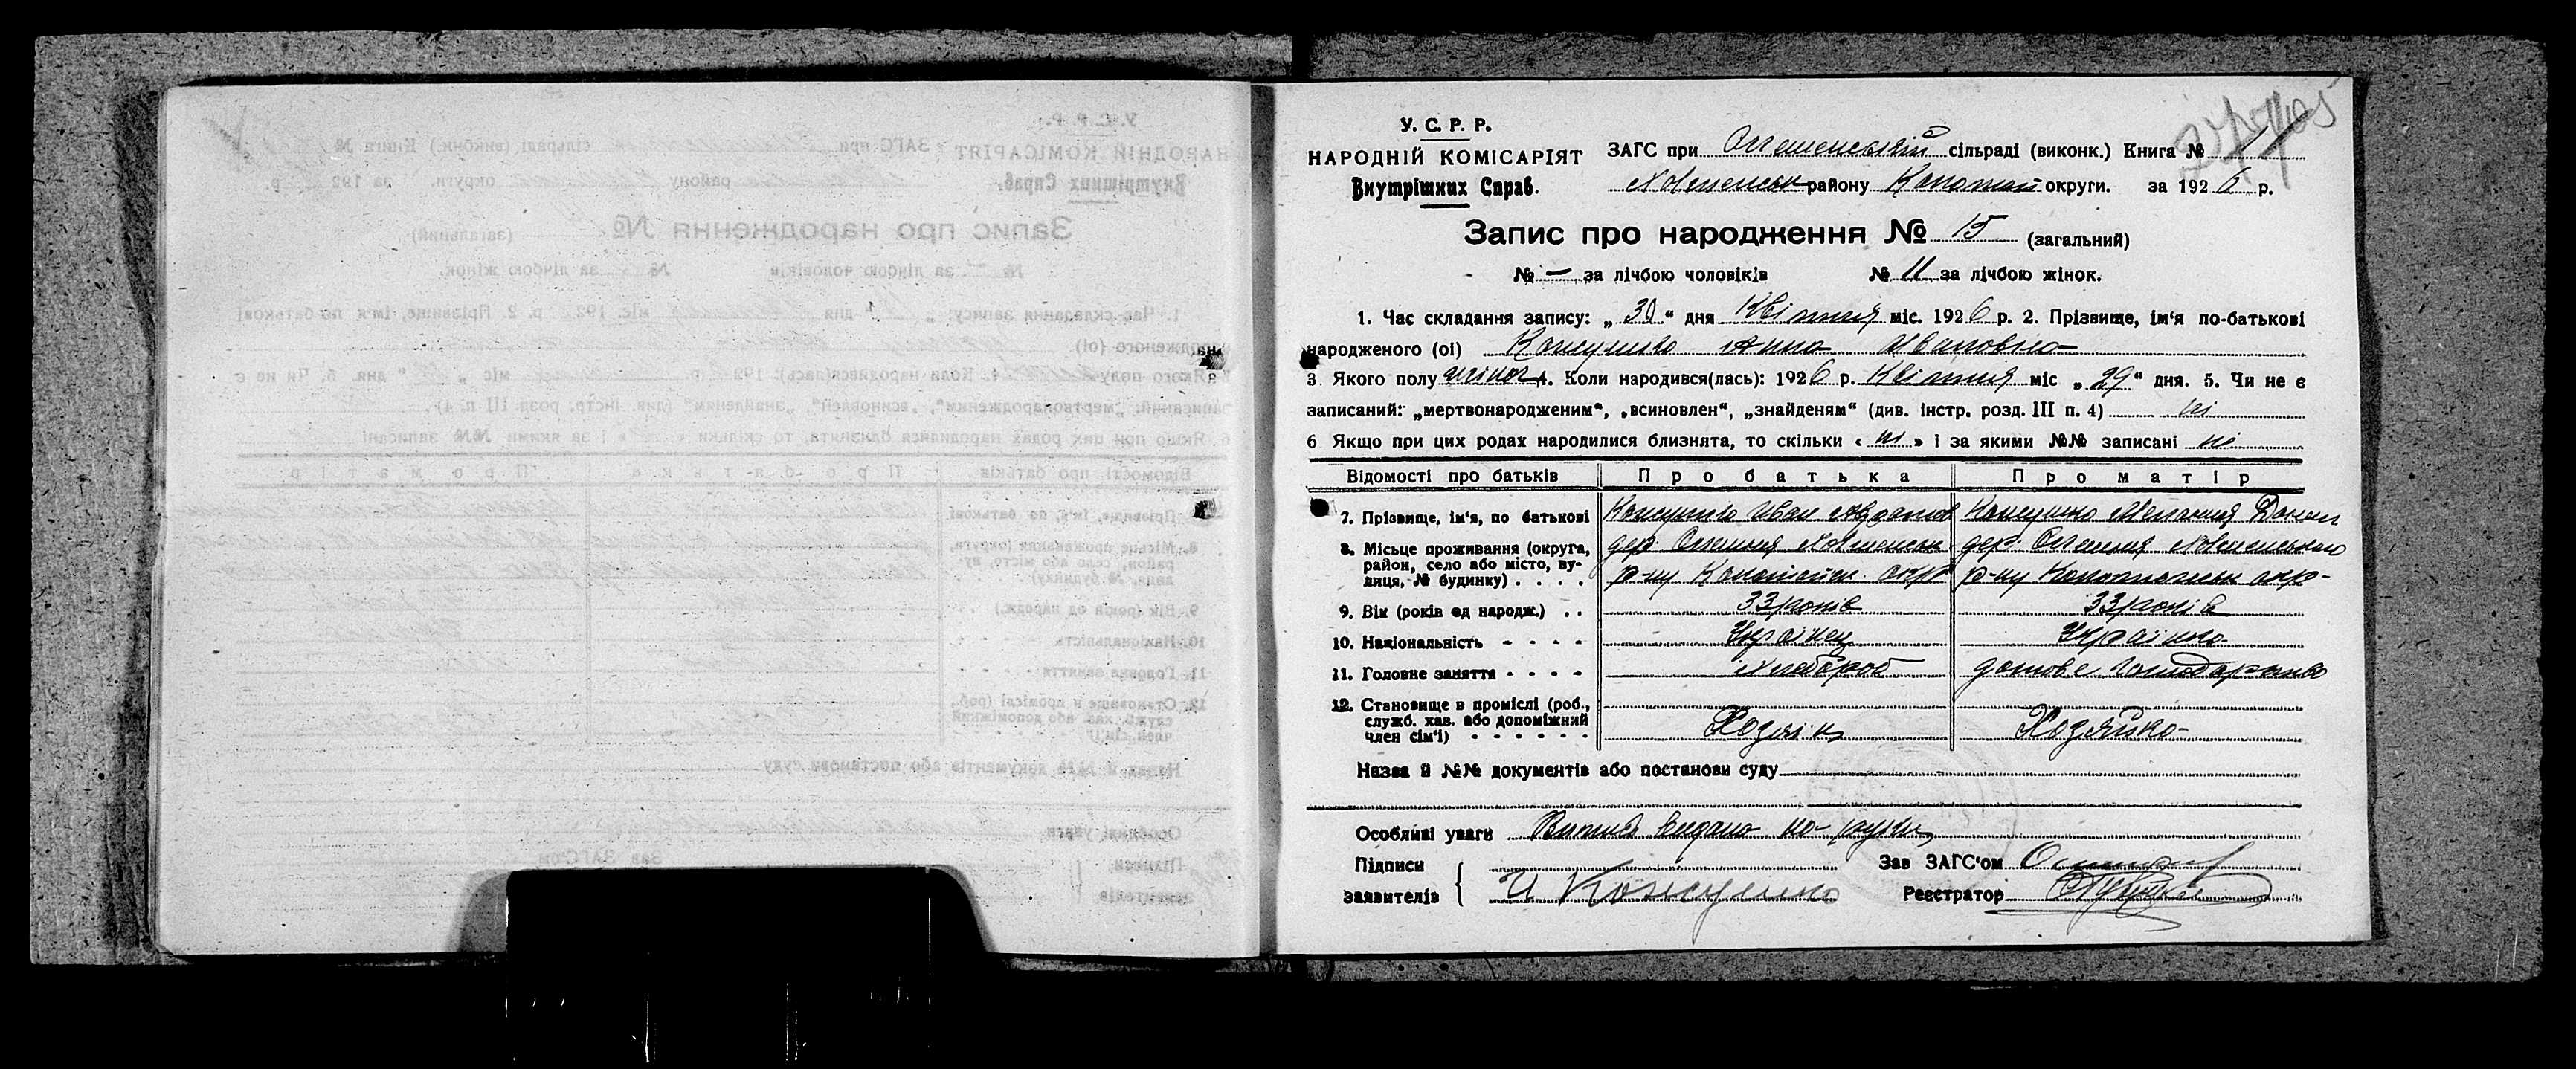 У. С. Р. Р.
НАРОДНІЙ КОМІСАРІЯТ
Внутрішних Справ.
ЗАГС при сільраді (виконк.) Книга № 1
району округи. за 1926 р.
Запис про народження № 15 (загальний)
№ — за лічбою чоловіків № 11 за лічбою жінок.
1. Час складання запису: „ 30 “ дня Квітня міс. 1926 р. 2. Прізвище, ім'я по-батькові
народженого (ої) Кожушко Анна Ивановна
3. Якого полу жіноч 4. Коли народився(лась): 1926 р. Квітня міс „ 29 “ дня. 5. Чи не є
записаний: „мертвонародженим“, „всиновлен“, „знайденям“ (див. інстр. розд. III п. 4) ні
6 Якщо при цих родах народилися близнята, то скільки « ні » і за якими №№ записані ні
Відомості про батьків Про батька Про матір
7. Прізвище, ім'я, по батькові Кожушко Иван Кожушко Мелания
8. Місьце проживання (округа,
район, село або місто, ву-
лиця, № будинку) . . . .
дер. р-ну окр дер. р-ну окр-
9. Вік (років од народж.) . . 33 років 33 років
10. Національність - - - - Українец Українка
11. Головне заняття - - - - хлібороб домове господарство
12. Становище в промислі (роб.,
служб. хаз. або допоміжний
член сім'ї) - - - - - -
Хозяін Хозяйка
Назва й №№ документів або постанови суду
Особливі уваги Выпись видано на руки
Підписи
заявителів { И Кожушко
Зав ЗАГС'ом
Реєстратор